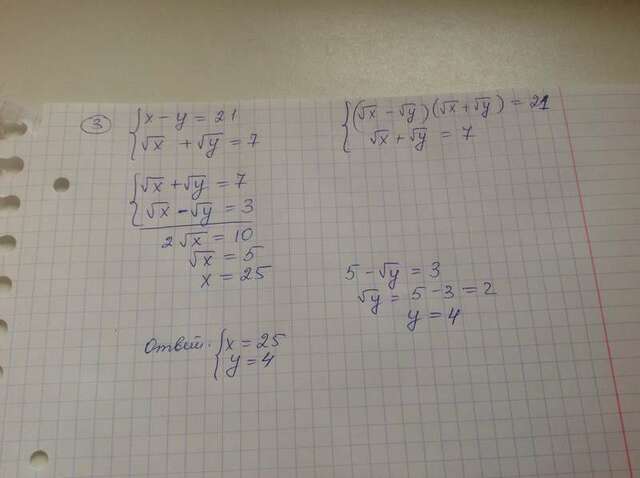 3 { x - y = 21
√x + √y = 7
{ (√x - √y)(√x + √y) = 21
√x + √y = 7
{ √x + √y = 7
√x - √y = 3
2√x = 10
√x = 5
x = 25
5 - √y = 3
√y = 5 - 3 = 2
y = 4
Ответ: { x = 25
y = 4